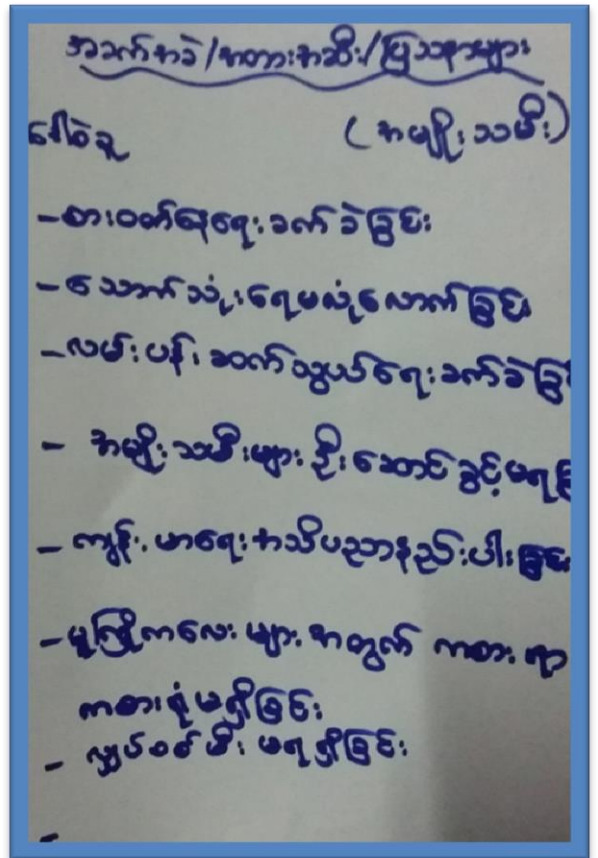 အခက်အခဲ/အတားအဆီး/ပြဿနာများ
ဒေါ်ခဲခူ (အမျိုးသမီး)
-စားဝတ်နေရေးခက်ခဲခြင်း
-သောက်သုံးရေမလုံလောက်ခြင်း
-လမ်းပန်းဆက်သွယ်ရေးခက်ခဲခြ
- အမျိုးသမီးများဦးဆောင်ခွင့်မရခြ
- ကျန်းမာရေးအသိပညာနည်းပါးခြင်း
-မူကြိုကလေးများအတွက် ကစားရာ
ကစားရုံမရှိခြင်း
- လျှပ်စစ်မီးမရရှိခြင်း
-